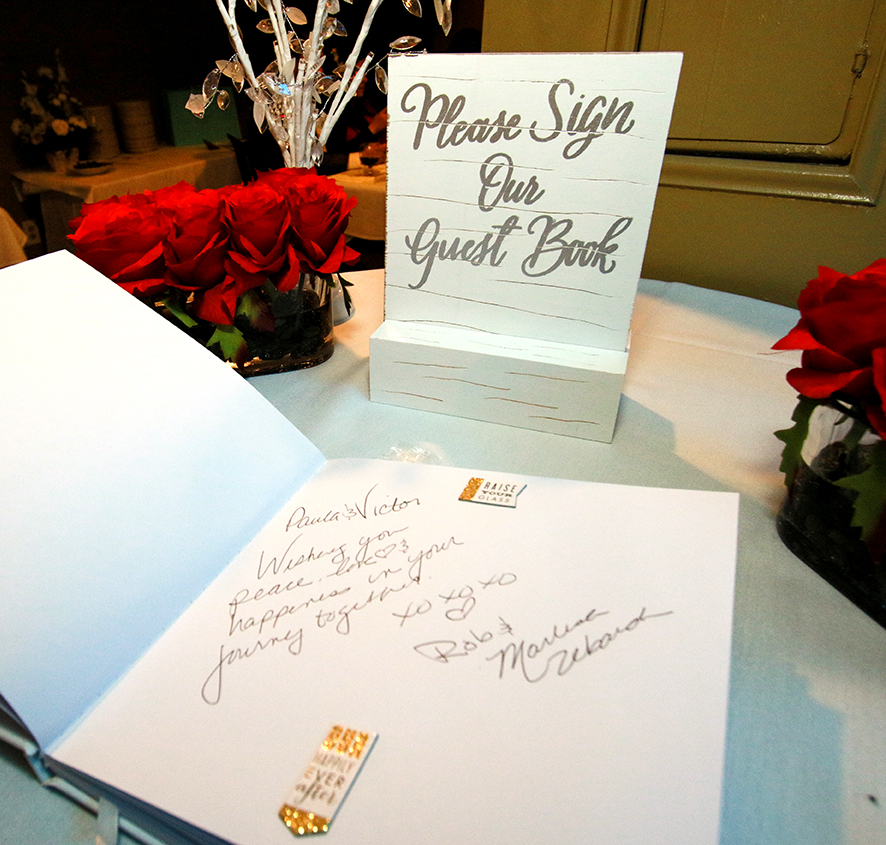 Please Sign
Our
Guest Book
RAISE
YOUR
GLASS
Paula & Victor
Wishing you
peace, love ♡ &
happiness in your
journey together.
XO XO XO
♡
Rob &
Marlena
HAPPILY
EVER
after